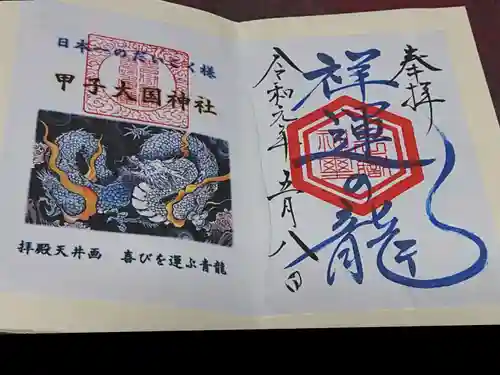 日本一のだいこく様
甲子大国神社
拝殿天井画 喜びを運ぶ青龍
奉拝
祥運の龍
令和元年五月八日